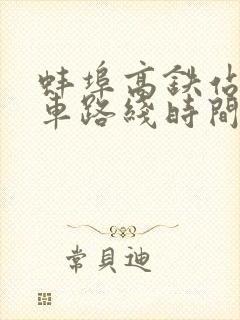 蚌埠高鉄佔
車路綫時間
常貝迪